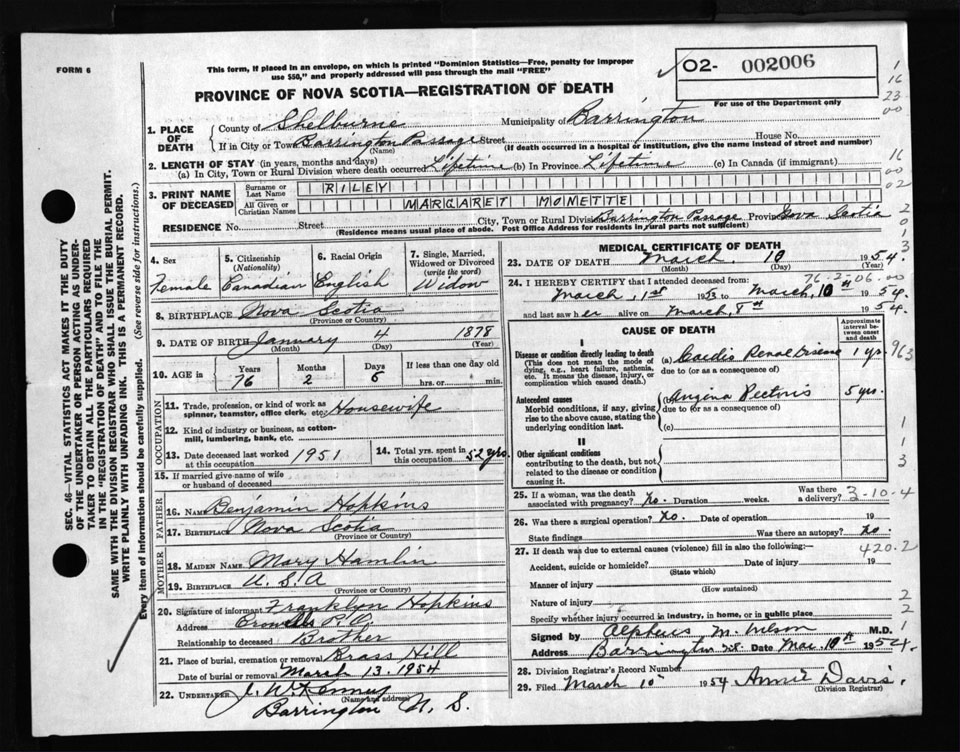 FORM 6
This form, if placed in an envelope, on which is printed "Dominion Statistics—Free, penalty for improper
use $50," and properly addressed will pass through the mail "FREE"
02- 002006
For use of the Department only
PROVINCE OF NOVA SCOTIA—REGISTRATION OF DEATH
1. PLACE OF DEATH
County of Shelburne Municipality of Barrington
If in City or Town Barrington Passage Street House No.
(Name) (If death occurred in a hospital or institution, give the name instead of street and number)
2. LENGTH OF STAY (in years, months and days)
(a) In City, Town or Rural Division where death occurred Lifetime (b) In Province Lifetime (c) In Canada (if immigrant)
3. PRINT NAME OF DECEASED
Surname or Last Name RILEY
All Given or Christian Names MARGARET MONETTE
RESIDENCE No. Street City, Town or Rural Division Barrington Passage Province Nova Scotia
(Residence means usual place of abode. Post Office Address for residents in rural parts not sufficient)
4. Sex
Female
5. Citizenship
(Nationality)
Canadian
6. Racial Origin
English
7. Single, Married,
Widowed or Divorced
(write the word)
Widow
8. BIRTHPLACE Nova Scotia
(Province or Country)
9. DATE OF BIRTH January 4 1878
(Month) (Day) (Year)
10. AGE in
Years Months Days If less than one day
76 2 6 hrs. or min.
OCCUPATION
11. Trade, profession, or kind of work as
spinner, teamster, office clerk, etc. Housewife
12. Kind of industry or business, as cotton-
mill, lumbering, bank, etc.
13. Date deceased last worked
at this occupation 1951
14. Total yrs. spent in
this occupation 52 yrs
15. If married give name of wife
or husband of deceased
FATHER
16. NAME Benjamin Hopkins
17. BIRTHPLACE Nova Scotia
(Province or Country)
MOTHER
18. MAIDEN NAME Mary Hamlin
19. BIRTHPLACE U.S.A
(Province or Country)
20. Signature of informant Franklyn Hopkins
Address P.O.
Relationship to deceased Brother
21. Place of burial, cremation or removal Brass Hill
Date of burial or removal March 13. 1954
22. UNDERTAKER
(Name and address)
Barrington N. S.
MEDICAL CERTIFICATE OF DEATH
23. DATE OF DEATH March 10 1954.
(Month) (Day) (Year)
76-2-06.00
24. I HEREBY CERTIFY that I attended deceased from
March, 1st 1953 to March, 10th 1954.
and last saw her alive on March, 8th 1954.
CAUSE OF DEATH
Approximate interval between onset and death
I
Disease or condition directly leading to death
(This does not mean the mode of
dying, e.g., heart failure, asthenia,
etc. It means the disease, injury, or
complication which caused death.)
(a) Cardio Renal Disease 1 yr.
due to (or as a consequence of)
Antecedent causes
Morbid conditions, if any, giving
rise to the above cause, stating the
underlying condition last.
(b) Angina Pectoris 5 yrs.
due to (or as a consequence of)
(c)
II
Other significant conditions
contributing to the death, but not
related to the disease or condition
causing it.
25. If a woman, was the death
associated with pregnancy? No. Duration weeks. Was there a delivery?
3-10-4
26. Was there a surgical operation? No. Date of operation 19
State findings Was there an autopsy? No.
27. If death was due to external causes (violence) fill in also the following:—
420.2
Accident, suicide or homicide? Date of injury 19
(State which)
Manner of injury
(How sustained)
Nature of injury
Specify whether injury occurred in industry, in home, or in public place
Signed by Alpheus M. Wilson M.D.
Address Barrington Date Mar. 10th 1954.
28. Division Registrar's Record Number
29. Filed March 10 1954 Annie Davis.
(Division Registrar)
SEC. 46—VITAL STATISTICS ACT MAKES IT THE DUTY
OF THE UNDERTAKER OR PERSON ACTING AS UNDER-
TAKER TO OBTAIN ALL THE PARTICULARS REQUIRED
IN THE "REGISTRATION OF DEATH" AND TO FILE THE
SAME WITH THE DIVISION REGISTRAR WHO SHALL ISSUE THE BURIAL PERMIT.
WRITE PLAINLY WITH UNFADING INK. THIS IS A PERMANENT RECORD.
Every item of information should be carefully supplied. (See reverse side for instructions.)
1
16
23
00
16
00
02
2
0
1
3
963
1
1
3
2
2
1